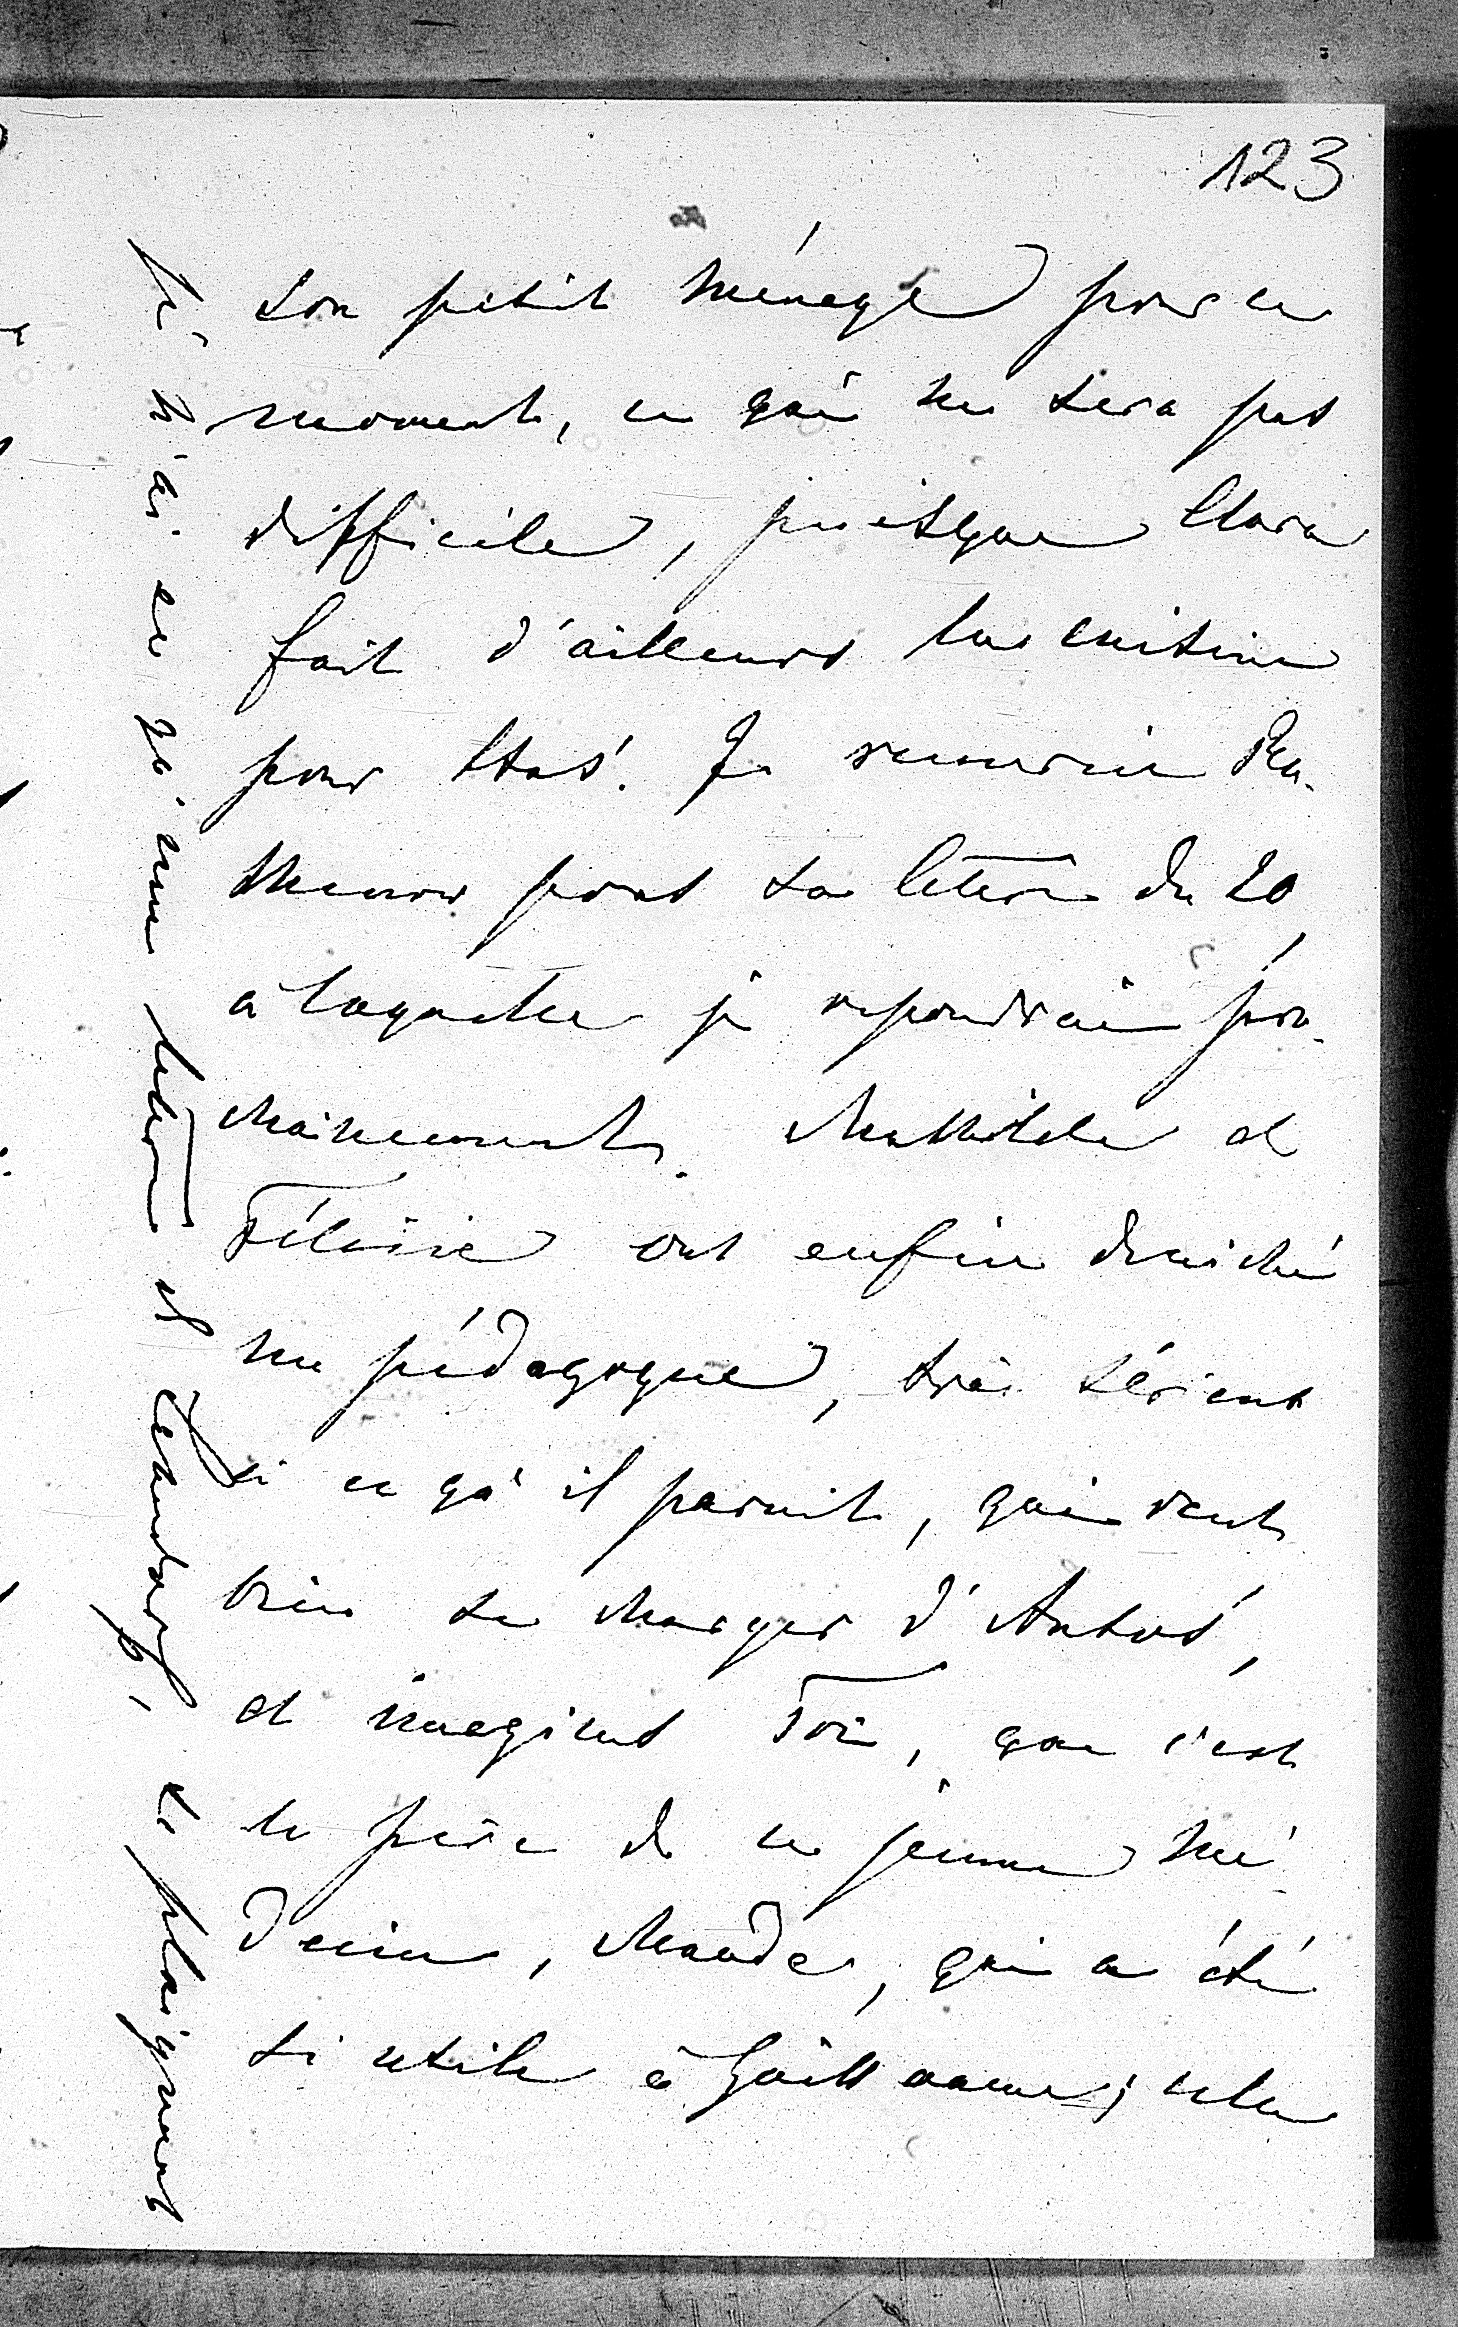 123
son petit ménage pour ce
moment, ce qui ne sera pas
difficile, puisque Clara
fait d'ailleurs la cuisine
pour Staś. Je remercie
pour sa lettre du 20,
à laquelle je repondrai pro-
chainement. Mathilde et
Félicie ont enfin deniché
un pédagogue, très sérieux
à ce qu'il parait, qui veut
bien se charger d'Antoś,
et imagines Toi, que c'est
le père de ce jeune mé-
decin, qui a été
si utile à Guillaume; cela
Je n'ai eu qu'une lettre et se plaignent